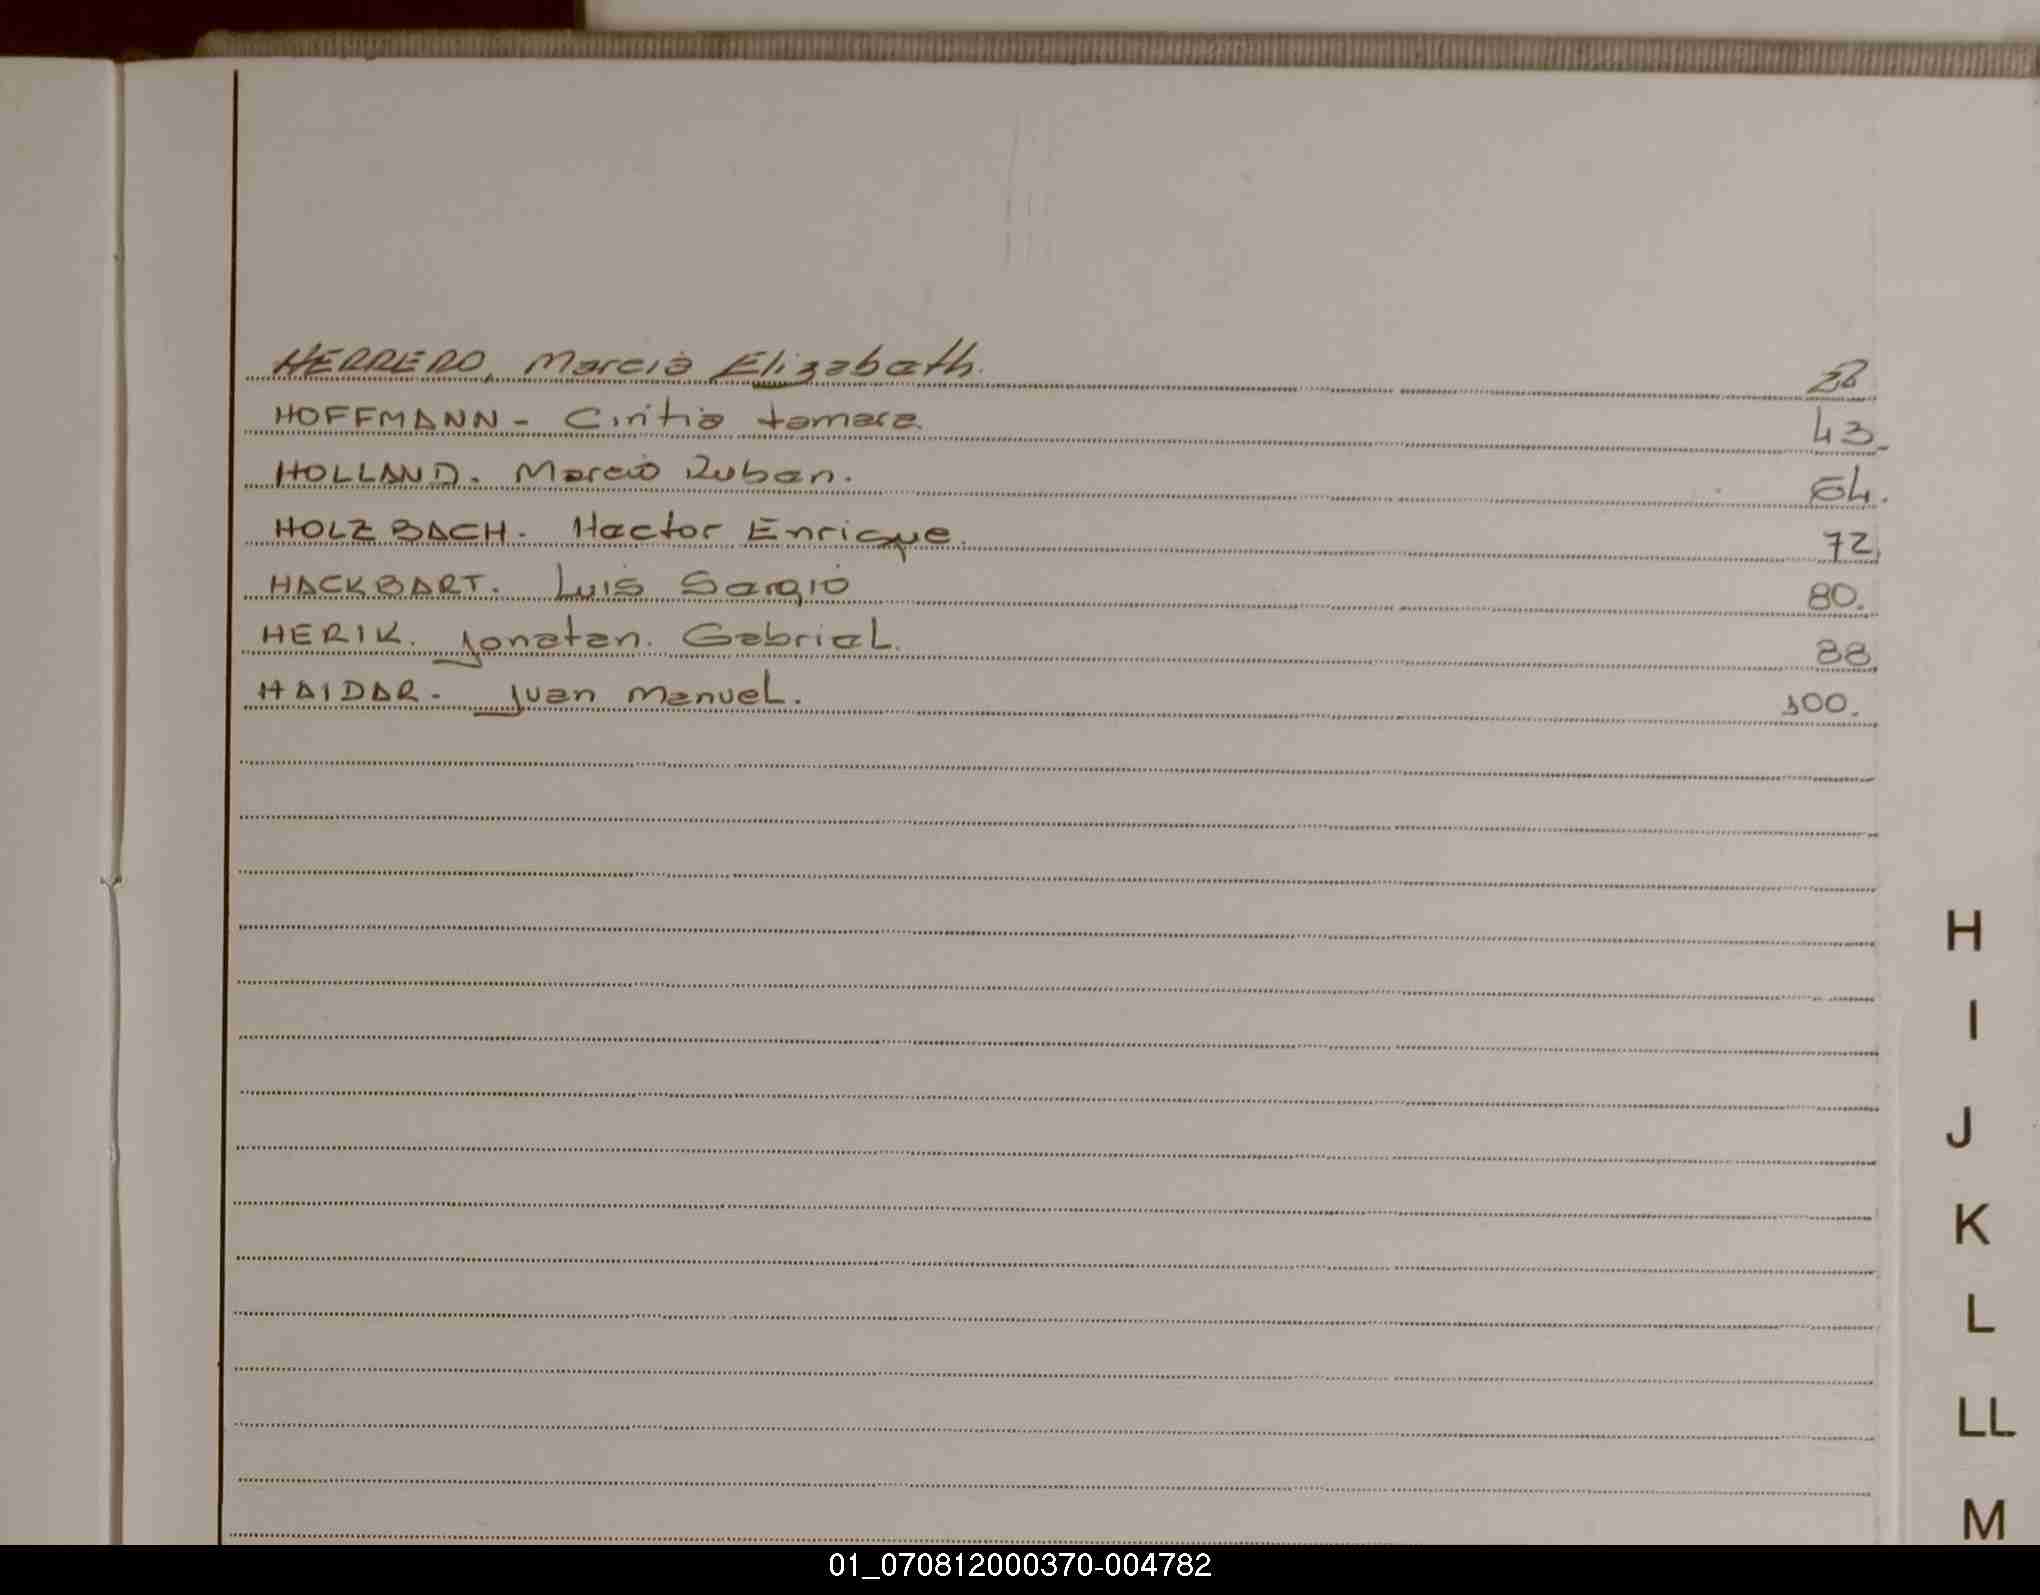 HERRERO, Marcia Elizabeth.
HOFFMANN - Cintia tamara. 43.
HOLLAND. Marcio Ruben. 64.
HOLZBACH. Hector Enrique. 72.
HACKBART. Luis Sergio 80.
HERIK. Jonatan. Gabriel. 88.
HAIDAR. Juan Manuel. 100.
H
I
J
K
L
LL
M
01_070812000370-004782